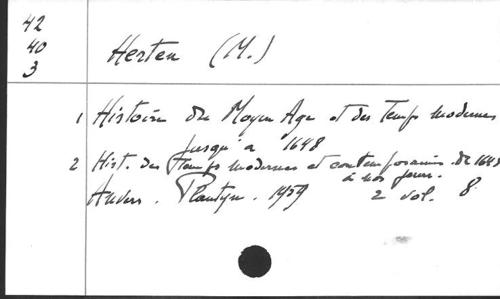 42
40
3
Herten (M.)
1 Histoire du Moyen Age et des Temps modernes
jusqu'à 1648
2 Hist. des Temps modernes et contemporains. de 1648
à nos jours.
Anvers. Plantyn. 1959 2 vol. 8